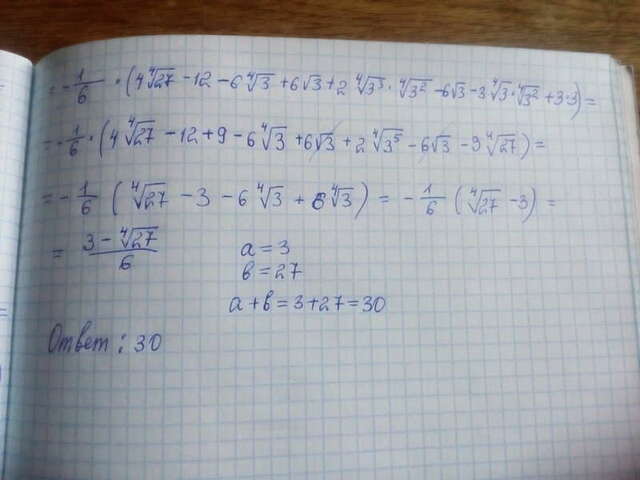 = -1/6 · (4∜27 - 12 - 6∜3 + 6√3 + 2∜3³ · ∜3² - 6√3 - 3∜3 · ∜3² + 3·3) =
= -1/6 · (4∜27 - 12 + 9 - 6∜3 + 6√3 + 2∜3⁵ - 6√3 - 9∜27) =
= -1/6 (∜27 - 3 - 6∜3 + 6∜3) = -1/6 (∜27 - 3) =
= (3 - ∜27)/6 a = 3
в = 27
a + в = 3 + 27 = 30
Ответ: 30